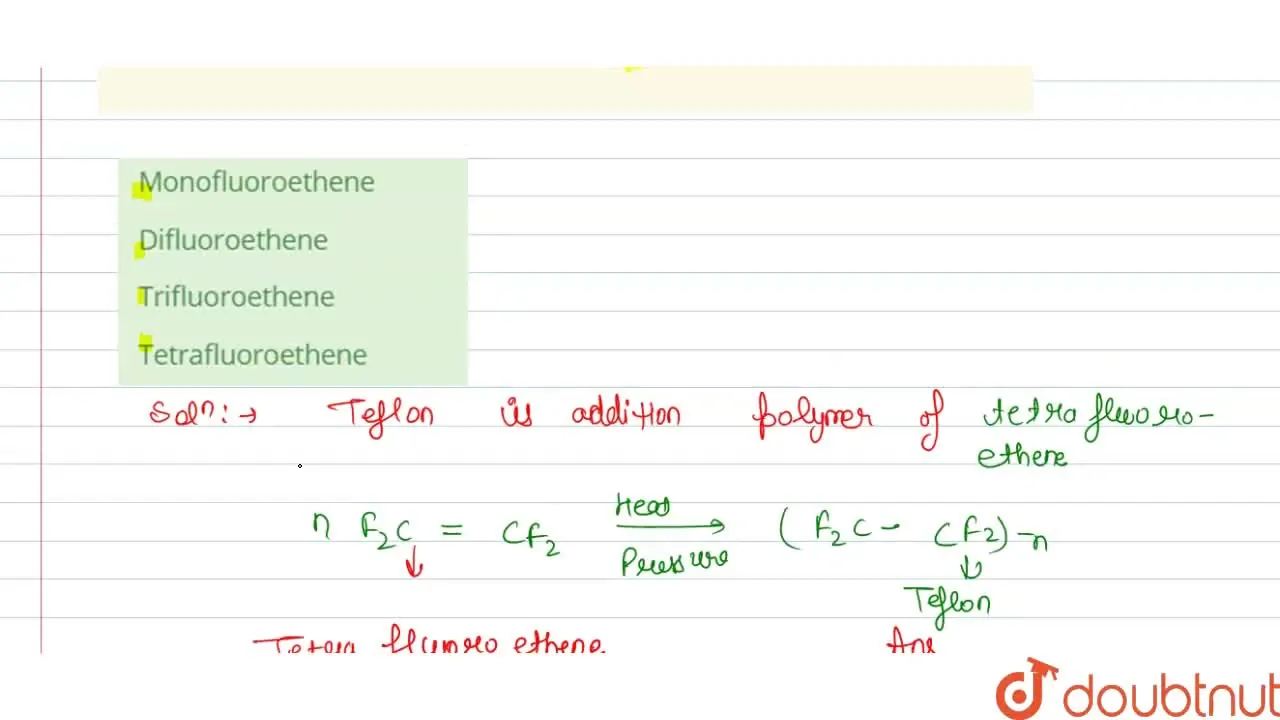 Monofluoroethene
Difluoroethene
Trifluoroethene
Tetrafluoroethene
Solⁿ:→ Teflon is addition polymer of tetrafluoro-
ethene
n F₂C = CF₂ Heat Pressure (F₂C - CF₂)-n
Teflon
Tetra fluoro ethene Ans
doubtnut